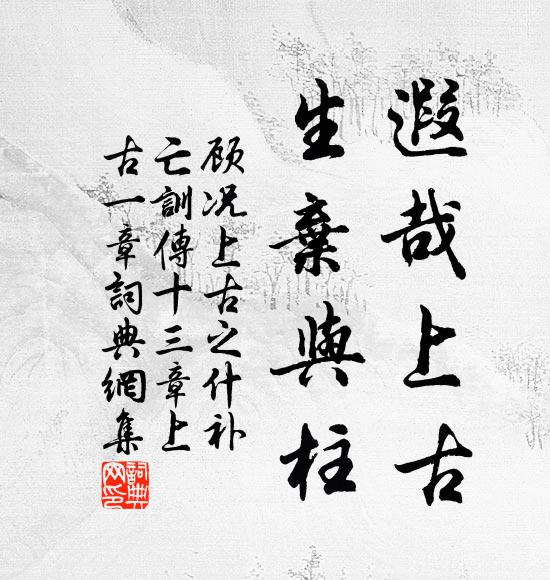 遐哉上古
生棄與柱
顾况上古之什补
亡訓傳十三章上
古一章詞典網集
詞典网印